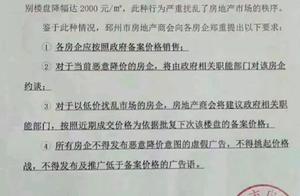 别楼盘降幅达 2000 元/㎡，此种行为严重扰乱了房地产市场的秩序。
鉴于此种情况，邳州市房地产商会向各房企郑重提出以下要求：
① 各房企应按照政府备案价格销售；
② 对于当前恶意降价的房企，将由政府相关职能部门对该房企
约谈；
③ 对于以低价扰乱市场的房企，房地产商会将建议政府相关职
能部门，按照近期成交价格为依据批复下次该楼盘的备案价格；
④ 所有房企不得发布恶意降价意图的虚假广告，不得挑起价格
战，不得发布及推广低于备案价格的广告语。